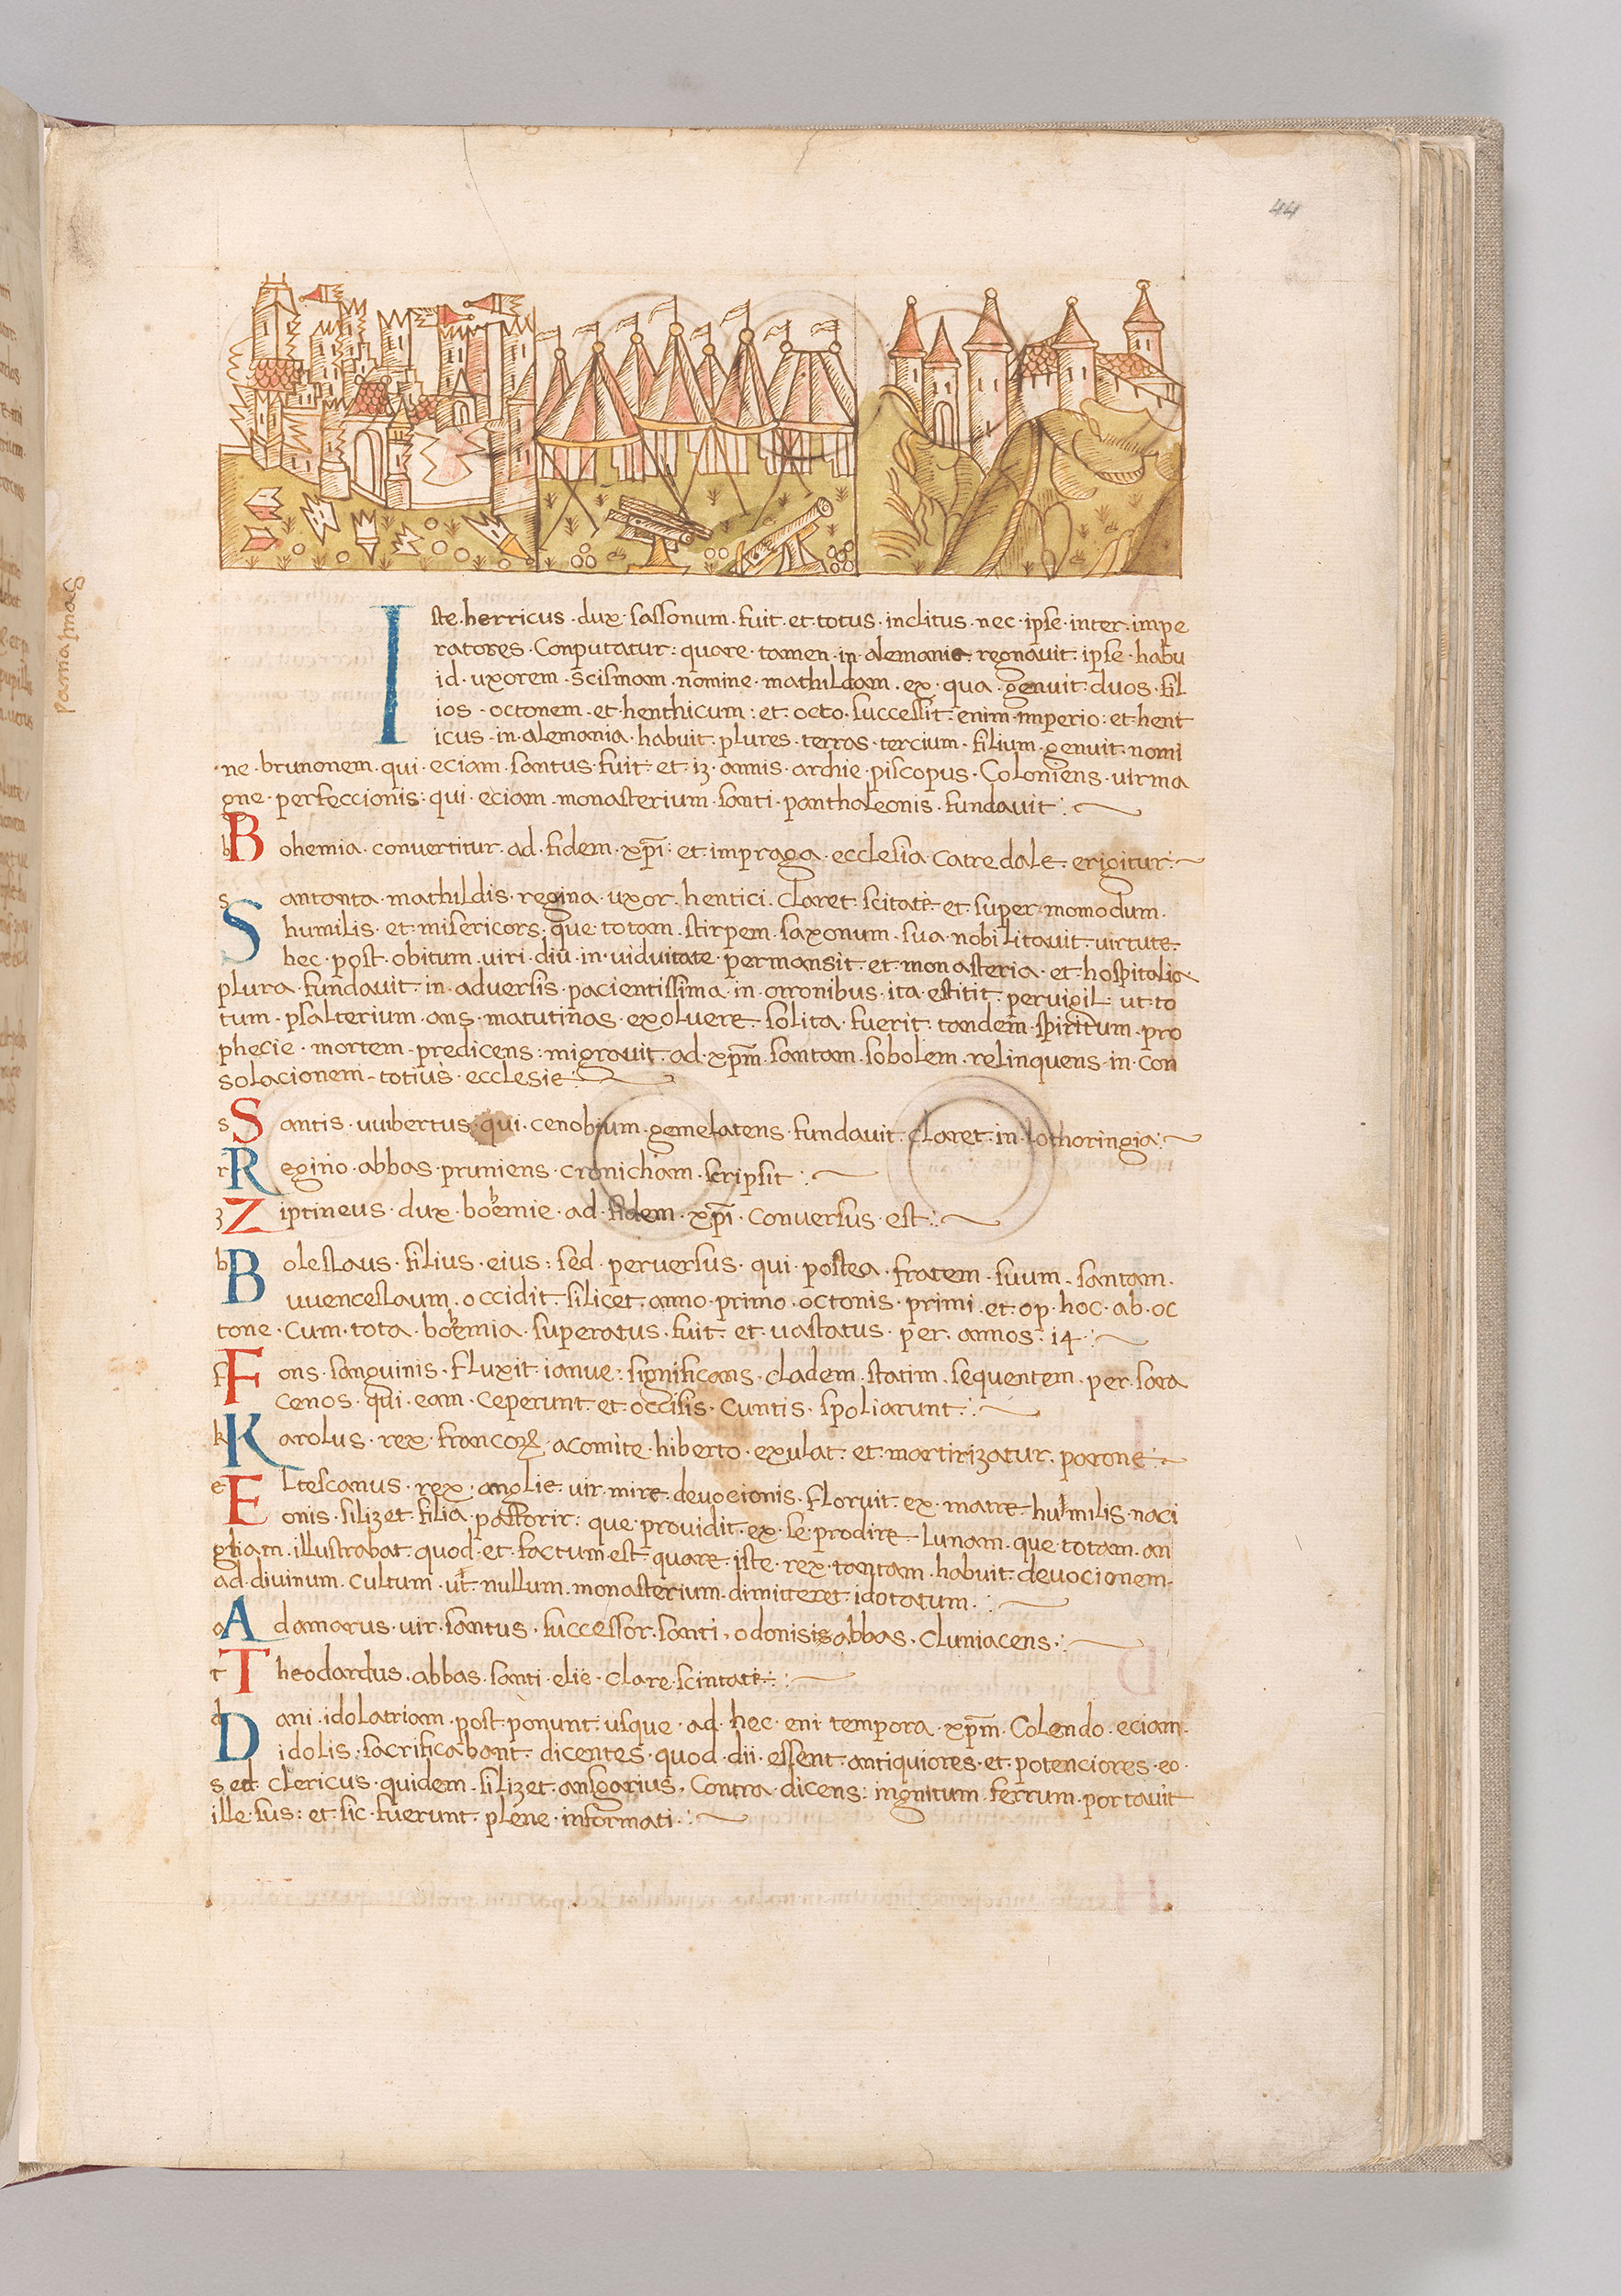 44
Iste · herricus · dux · sassonum · fuit · et · totus · inclitus · nec · ipse · inter · impe
ratores · Conputatur : quare · tamen · in · alemanie · regnavit : ipse · habu
id · uxorem · scismam · nomine · mathildam · ex · qua · genuit · duos · fil
ios · octonem · et · henthicum : et · octo · successit · enim · imperio : et · hent
icus · in · alemania · habuit · plures · terras · tercium · filium · genuit · nomi
ne · brunonem · qui · eciam · santus · fuit · et · 13 · annis · archie · piscopus · Coloniens · uir ma
gne · perfeccionis : qui · eciam · monasterium · santi · panthaleonis · fundauit :
b Bohemia · convertitur · ad · fidem · xp̄i : et · impraga · ecclesia · catredale · erigitur :
s Santonta · mathildis · regina · uxor · hentici · claret · scitate · et · super · momodum ·
humilis · et · misericors · que · totam · stirpem · saxonum · sua · nobilitauit · uirtute ·
hec · post · obitum · uiri · diu · in · uiduitate · permansit · et · monasteria · et · hospitalia
plura · fundauit · in · aduersis · pacientissima · in · orronibus · ita · estitit · pervigil · ut · to
tum · psalterium · ans · matutinas · exoluere · solita · fuerit · tandem · spiritum · pro
phecie · mortem · predicens : migrauit · ad · xp̄m · santam · sobolem · relinquens · in · con
solacionem · totius · ecclesie :
s Santis · uuibertus · qui · cenobium · gemelatens · fundauit · claret · in · lothoringia :
r Regino · abbas · pruniens · cronicham · scripsit :
z Ziptineus · dux · bohemie · ad · fidem · xp̄i · conuersus · est :
b Boleslaus · filius · eius : sed · peruersus · qui · postea · fratem · suum · santam ·
uuenceslaum · occidit · silicet · anno · primo · octonis · primi · et · op · hoc · ab · oc
tone · cum · tota · bohemia · superatus · fuit · et · uastatus · per · annos · 14 ·
f Fons · sanguinis · fluxit · ianue : significans · cladem · statim · sequentem · per · sara
cenos · qui · eam · ceperunt · et · occisis · cuntis · spoliarunt :
k Karolus · rex · francoꝝ · acomite · hiberto · exulat · et · martirizatur · parone :
e Eltescanus · rex · anglie · uir · mire · deuocionis · floruit · ex · matre · humilis · naci
onis · silizet · filia · pastorir : que · prouidit · ex · se · prodire · lunam · que · totam · an
gliam · illustrabat · quod · et · factum · est · quare · iste · rex · tantam · habuit · deuocionem ·
ad · diuinum · cultum · ut · nullum · monasterium · dimitteret · idotatum :
a Adamarus · uir · santus · successor · santi · odonisis abbas · cluniacens :
t Theodardus · abbas · santi · elie · clare · scintate :
d Dani · idolatriam · post · ponunt · usque · ad · hec · eni · tempora · xp̄m · Colendo · eciam ·
idolis : sacrificabant · dicentes · quod · dii · essent · antiquiores · et · potenciores · eo ·
sed · clericus · quidem · silizet · ansgarius · Contra · dicens : ingnitum · ferrum · portauit
ille · sus : et · sic · fuerunt · plene · informati ·